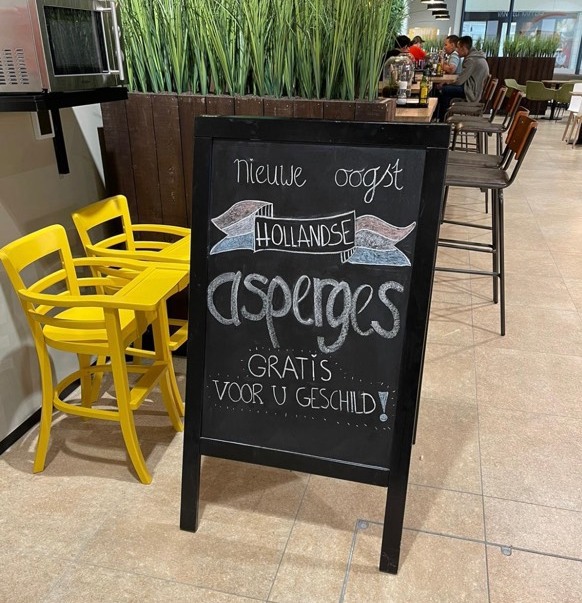 nieuwe oogst
HOLLANDSE
asperges
GRATIS
VOOR U GESCHILD!